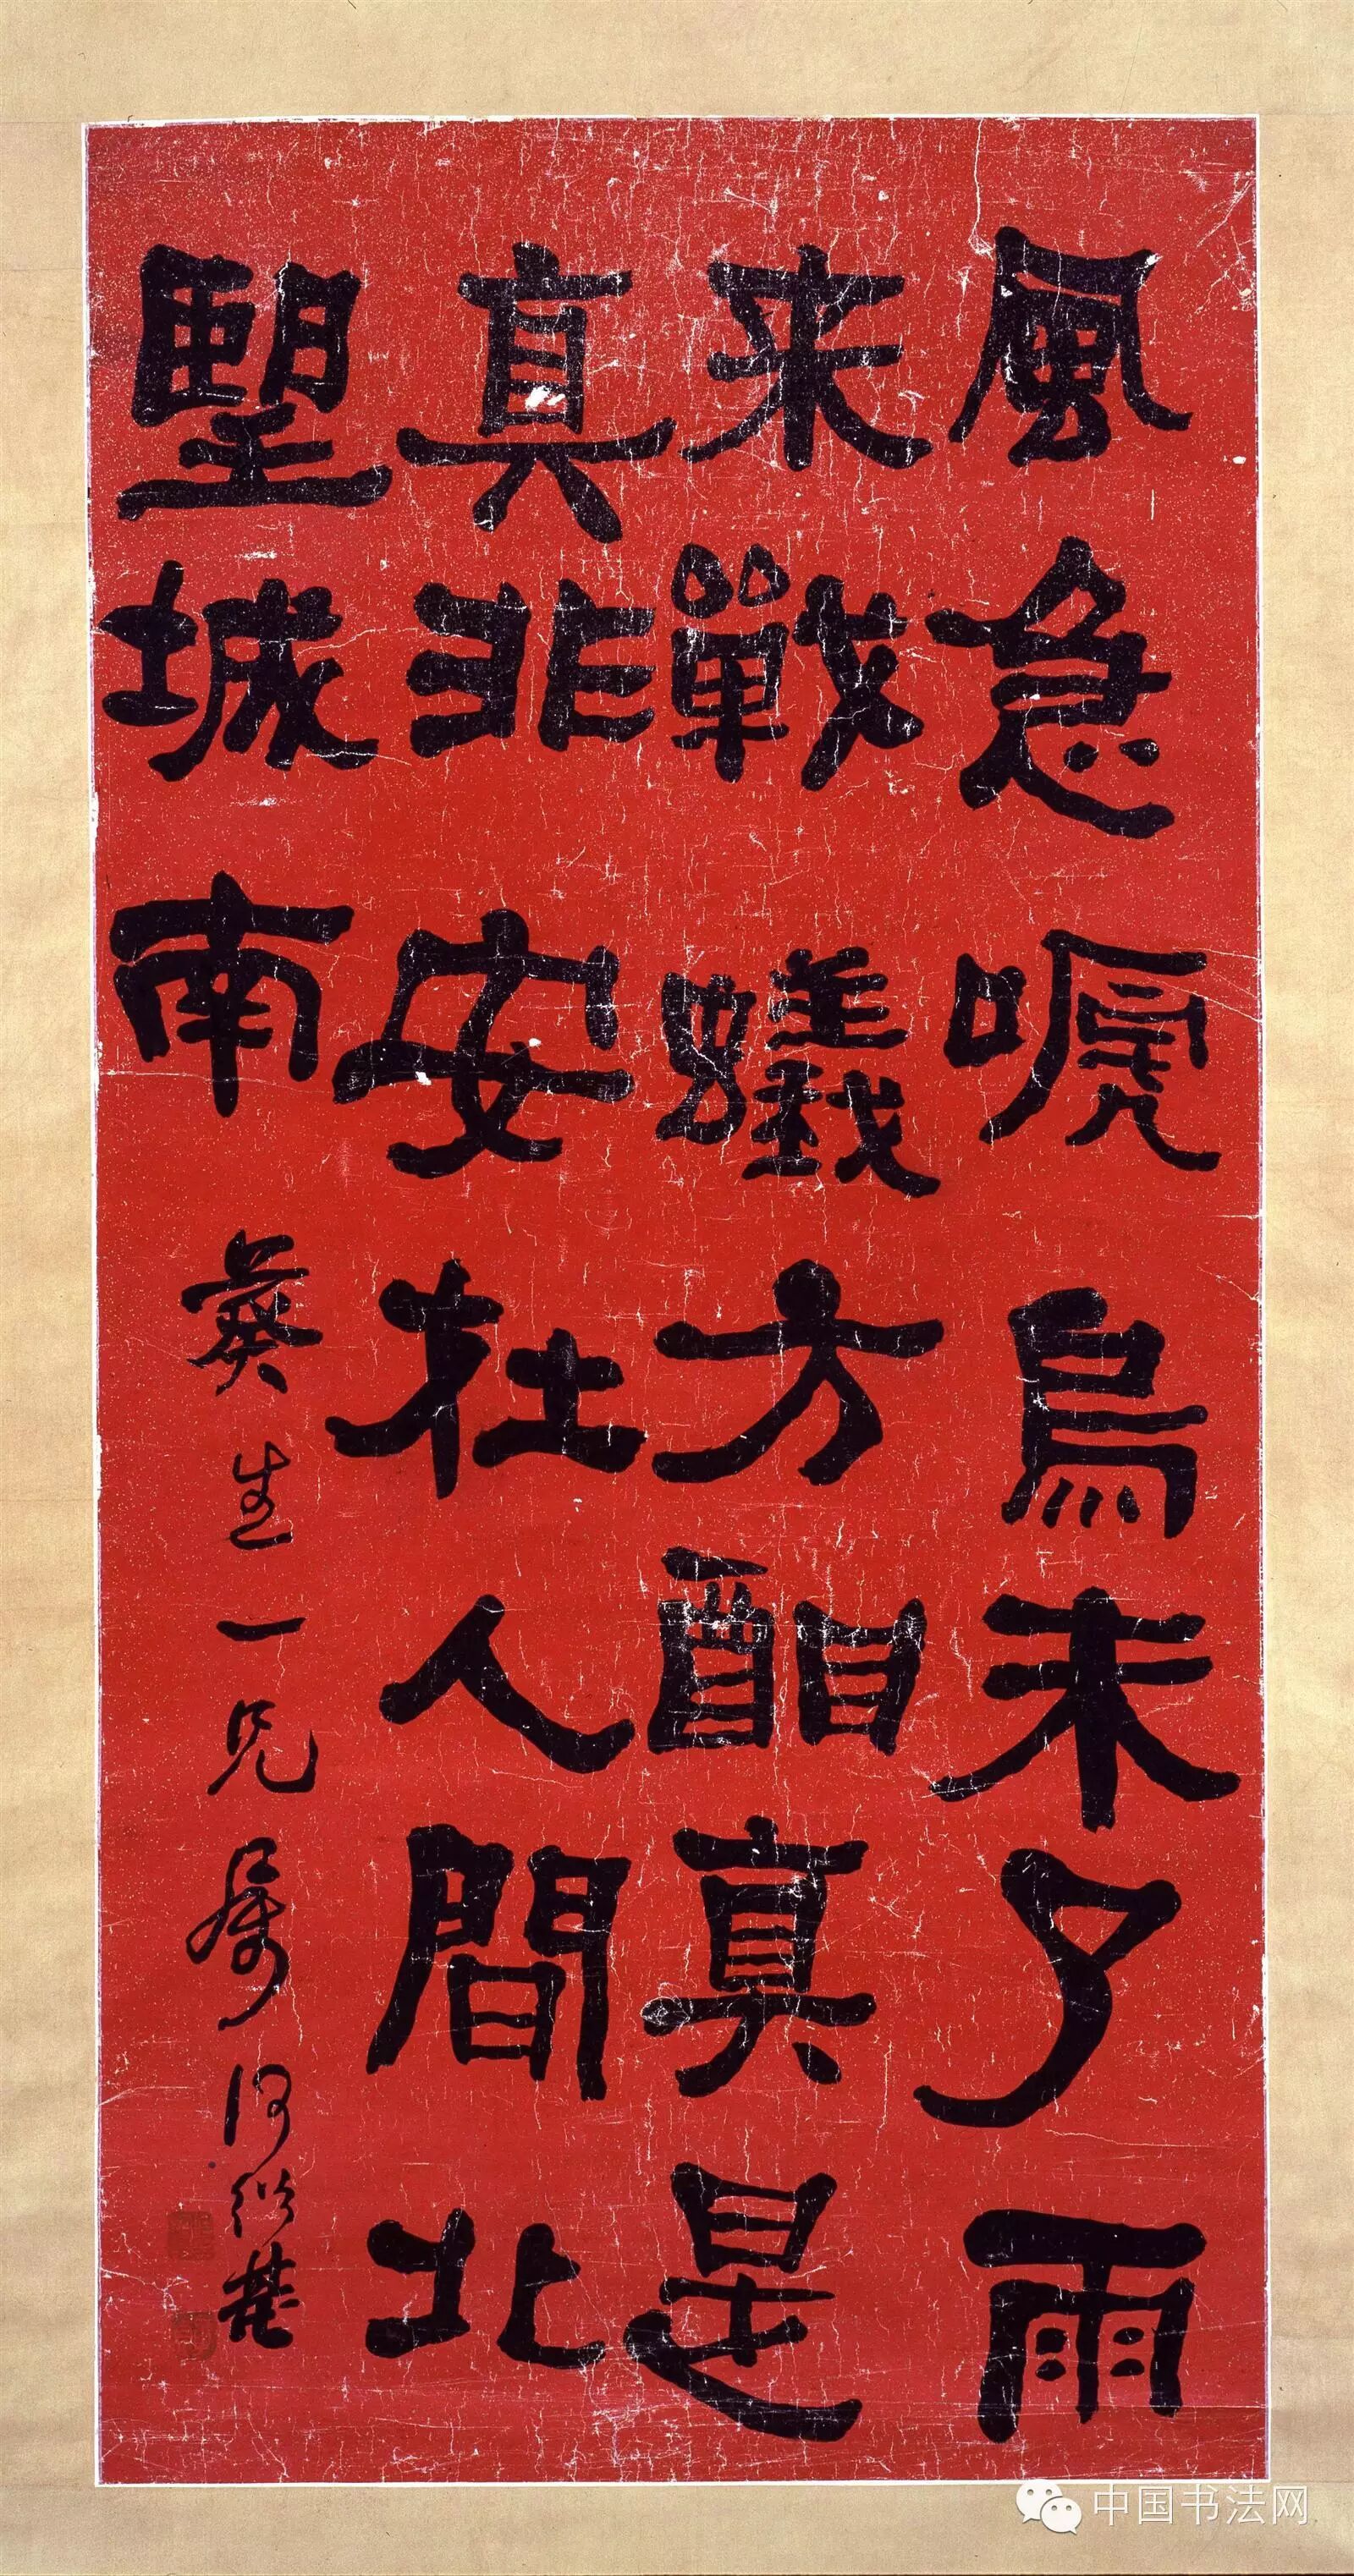 風急嗁烏未了雨
来戰蟻方酣真是
真非安在人間北
朢城南
葵生一兄屬何紹基
中国书法网